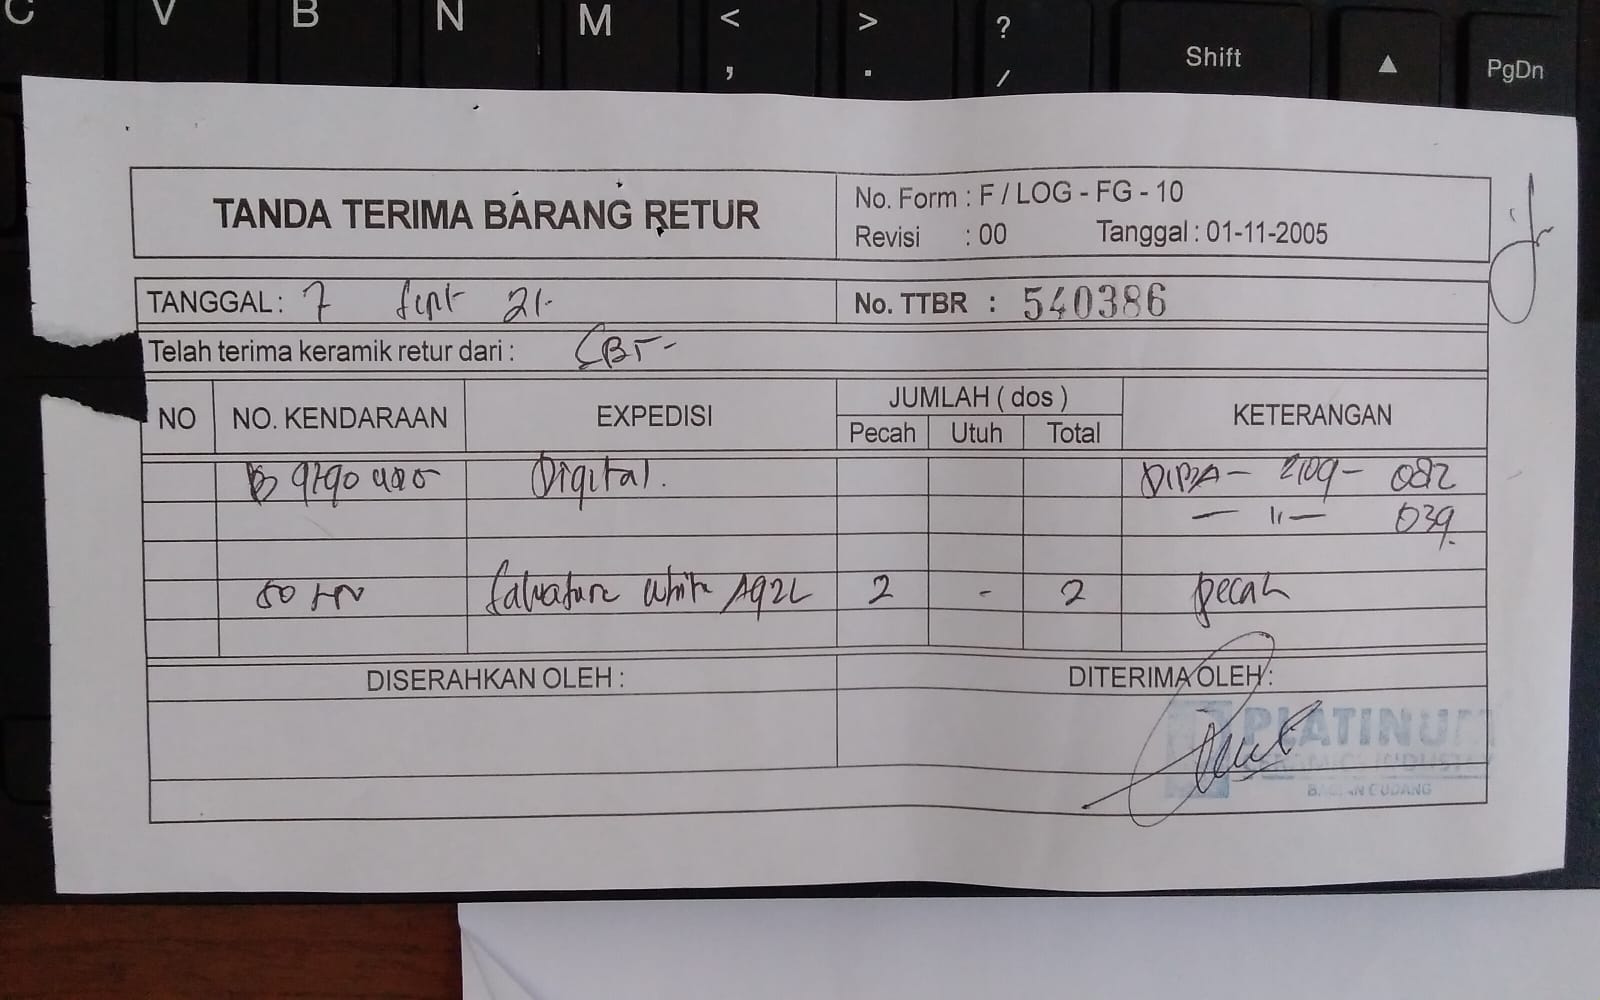 C V B N M < , > . ? / Shift ▲ PgDn
TANDA TERIMA BARANG RETUR
No. Form : F / LOG - FG - 10
Revisi : 00 Tanggal : 01-11-2005
TANGGAL : 7 Sept 21-
No. TTBR : 540386
Telah terima keramik retur dari : CBT-
NO NO. KENDARAAN EXPEDISI JUMLAH ( dos ) KETERANGAN
Pecah Utuh Total
Digital.
— 11 — 039.
white A92L 2 - 2 pecah
DISERAHKAN OLEH :
DITERIMA OLEH :
PLATINUM
CERAMICS INDUSTRY
BAGIAN GUDANG